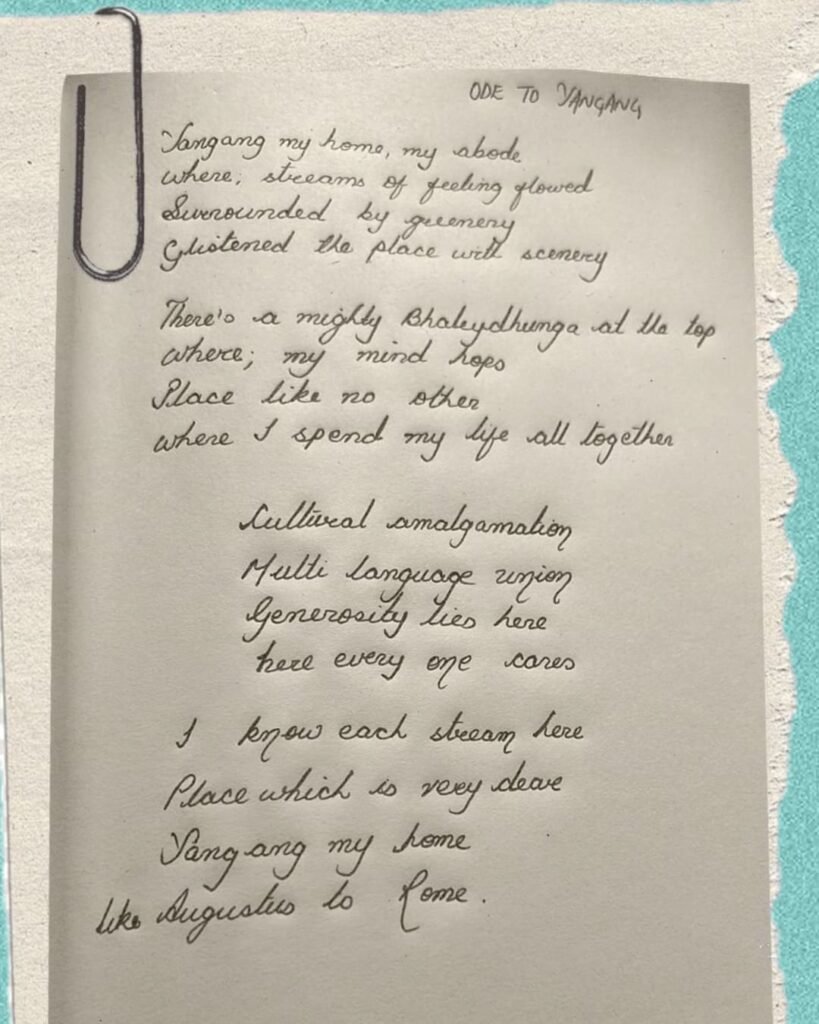 ODE TO YANGANG
Yangang my home, my abode
where; streams of feeling flowed
Surrounded by greenery
Glistened the place with scenery
There's a mighty Bhaleydhunga at the top
where; my mind hops
Place like no other
where I spend my life all together
Cultural amalgamation
Multi language union
Generosity lies here
here every one cares
I know each stream here
Place which is very deare
Yangang my home
like Augustus to Rome.